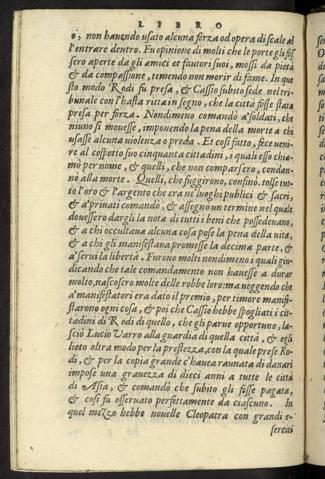 LIBRO
o, non hauendo usato alcuna forza od opera di scale al
l'entrare dentro. Fu opinione di molti che le porte gli fos
sero aperte da gli amici et fautori suoi, mossi da pietà
& da compassione, temendo non morir di fame. In que
sto modo Rodi fu presa, & Cassio subito sede nel tri-
bunale con l'hasta ritta in segno, che la città fosse stata
presa per forza. Nondimeno comandò a' soldati, che
niuno si mouesse, imponendo la pena della morte a chi
usasse alcuna uiolenza o preda. Et cosi fatto, fece ueni-
re al cospetto suo cinquanta cittadini, i quali esso chia-
mò per nome, & quelli, che non comparsero, condan-
nò alla morte. Quelli, che fuggirono, confinò. tolse tut-
to l'oro & l'argento che era ne' luoghi publici & sacri,
& a' priuati comandò, & assegnò un termine nel quale
douessero dargli la nota di tutti i beni che possedeuano,
& a chi occultaua alcuna cosa pose la pena della uita,
& a chi gli manifestaua promesse la decima parte, &
a' serui la libertà. Furono molti nondimeno i quali giu-
dicando che tale comandamento non hauesse a durar
molto, nascosero molte delle robbe loro: ma ueggendo che
a' manifestatori era dato il premio, per timore manife-
starono ogni cosa, & poi che Cassio hebbe spogliati i cit-
tadini di Rodi di quello, che gli parue opportuno, la-
sciò Lucio Varro alla guardia di quella città, & egli
lieto oltra modo per la prestezza, con la quale prese Ro-
di, & per la copia grande c'haueа raunata di danari
impose una grauezza di dieci anni a tutte le città
di Asia, & comandò che subito gli fosse pagata,
& cosi fu osseruato perfettamente da ciascuno. In
quel mezzo hebbe nouelle Cleopatra con grandi e-
serciti